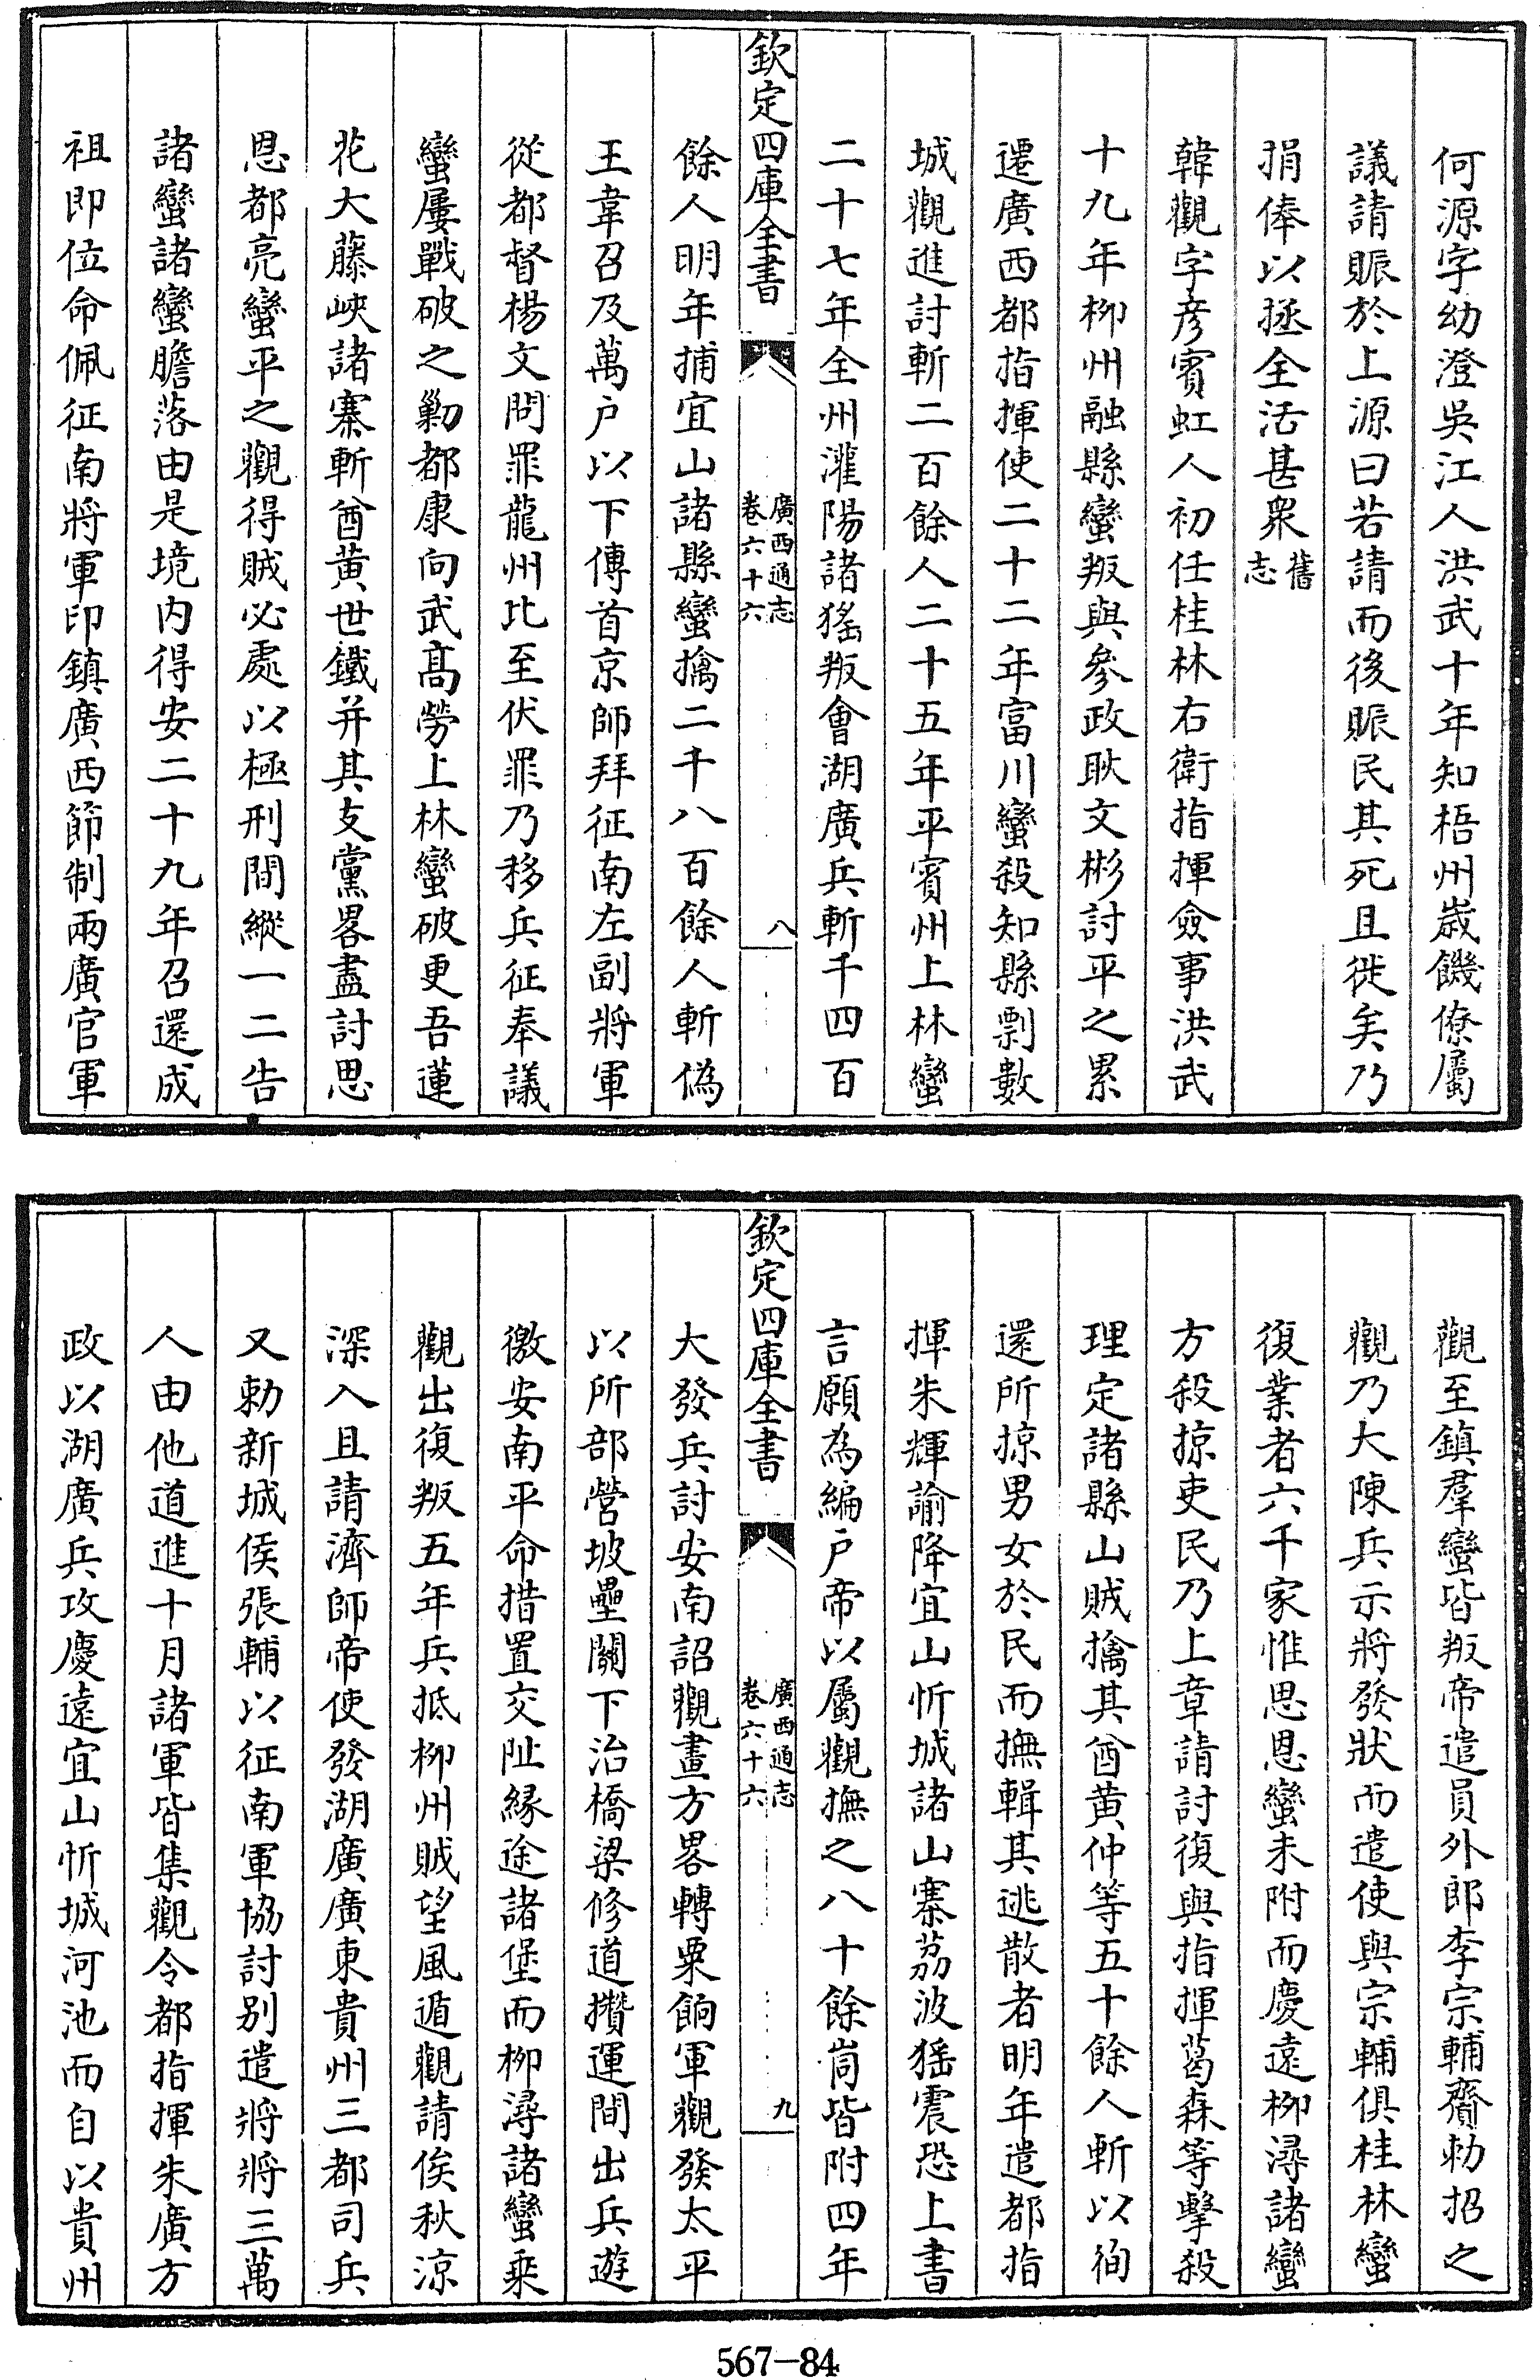 何源字幼澄吳江人洪武十年知梧州歲饑僚屬
議請賑於上源曰若請而後賑民其死且徙矣乃
捐俸以拯全活甚衆舊志
韓觀字彥賓虹人初任桂林右衛指揮僉事洪武
十九年柳州融縣蠻叛與參政耿文彬討平之累
遷廣西都指揮使二十二年富川蠻殺知縣剽數
城觀進討斬二百餘人二十五年平賓州上林蠻
二十七年全州灌陽諸猺叛會湖廣兵斬千四百
欽定四庫全書
廣西通志
卷六十六
八
餘人明年捕宜山諸縣蠻擒二千八百餘人斬偽
王韋召及萬户以下傳首京師拜征南左副將軍
從都督楊文問罪龍州比至伏罪乃移兵征奉議
蠻屢戰破之勦都康向武髙勞上林蠻破更吾蓮
花大藤峽諸寨斬酋黄世鐵并其支黨畧盡討思
恩都亮蠻平之觀得賊必處以極刑間縱一二告
諸蠻諸蠻膽落由是境内得安二十九年召還成
祖即位命佩征南將軍印鎮廣西節制兩廣官軍
觀至鎮羣蠻皆叛帝遣員外郎李宗輔齎勅招之
觀乃大陳兵示將發狀而遣使與宗輔俱桂林蠻
復業者六千家惟思恩蠻未附而慶遠柳潯諸蠻
方殺掠吏民乃上章請討復與指揮葛森等擊殺
理定諸縣山賊擒其酋黄仲等五十餘人斬以徇
還所掠男女於民而撫輯其逃散者明年遣都指
揮朱輝諭降宜山忻城諸山寨荔波猺震恐上書
言願為編户帝以屬觀撫之八十餘峒皆附四年
欽定四庫全書
廣西通志
卷六十六
九
大發兵討安南詔觀畫方畧轉粟餉軍觀發太平
以所部營坡壘關下治橋梁修道攢運間出兵遊
徼安南平命措置交阯縁途諸堡而柳潯諸蠻乘
觀出復叛五年兵抵柳州賊望風遁觀請俟秋涼
深入且請濟師帝使發湖廣廣東貴州三都司兵
又勅新城侯張輔以征南軍協討别遣將將三萬
人由他道進十月諸軍皆集觀令都指揮朱廣方
政以湖廣兵攻慶遠宜山忻城河池而自以貴州
567—84